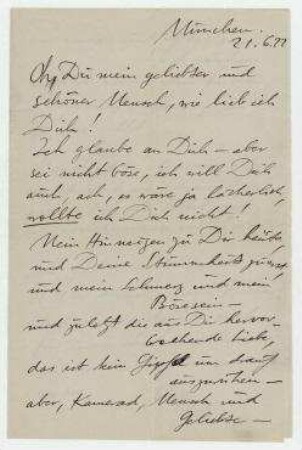 München.
21.6.22
Oh, Du mein geliebter und
schöner Mensch, wie lieb ich
Dich!
Ich glaube an Dich – aber
sei nicht böse, ich will Dich
auch, ach, es wäre ja lächerlich,
wollte ich Dich nicht!
Mein Hinneigen zu Dir heute
und Deine Stummheit zuerst
und mein Schmerz und mein
Bösesein –
und zuletzt die aus Dir hervor-
brechende Liebe,
das ist kein Gipfel um drauf
auszuruhen –
aber, Kamerad, Mensch und
Geliebte –